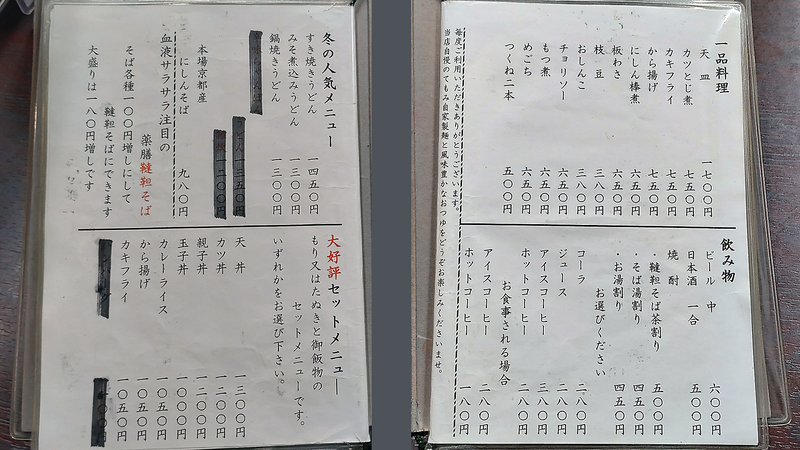 一品料理
天皿 一七〇〇円
カツとじ煮 七五〇円
カキフライ 七五〇円
から揚げ 七五〇円
にしん棒煮 六五〇円
板わさ 六五〇円
枝豆 三八〇円
おしんこ 三八〇円
チョリソー 六五〇円
もつ煮 六五〇円
めごち 六五〇円
つくね二本 五〇〇円
飲み物
ビール 中 六〇〇円
日本酒 一合 五〇〇円
焼酎
・韃靼そば茶割り 五〇〇円
・そば湯割り 四五〇円
・お湯割り 四五〇円
お選びください
コーラ 二八〇円
ジュース 二八〇円
アイスコーヒー 三八〇円
ホットコーヒー 二八〇円
お食事される場合
アイスコーヒー 二八〇円
ホットコーヒー 一八〇円
毎度ご利用いただきありがとうございます。
当店自慢のてもみ自家製麺と風味豊かなおつゆをどうぞお楽しみくださいませ。
冬の人気メニュー
すき焼きうどん 一四五〇円
みそ煮込みうどん 一三〇〇円
鍋焼きうどん 一三〇〇円
本場京都産
にしんそば 九八〇円
血液サラサラ注目の
薬膳韃靼そば
そば各種一〇〇円増しにして
韃靼そばにできます
大盛りは一八〇円増しです
大好評セットメニュー
もり又はたぬきと御飯物の
セットメニューです。
いずれかをお選び下さい。
天丼 一三〇〇円
カツ丼 一二〇〇円
親子丼 一二〇〇円
玉子丼 一〇〇〇円
カレーライス 一〇五〇円
から揚げ 一〇五〇円
カキフライ 一〇五〇円